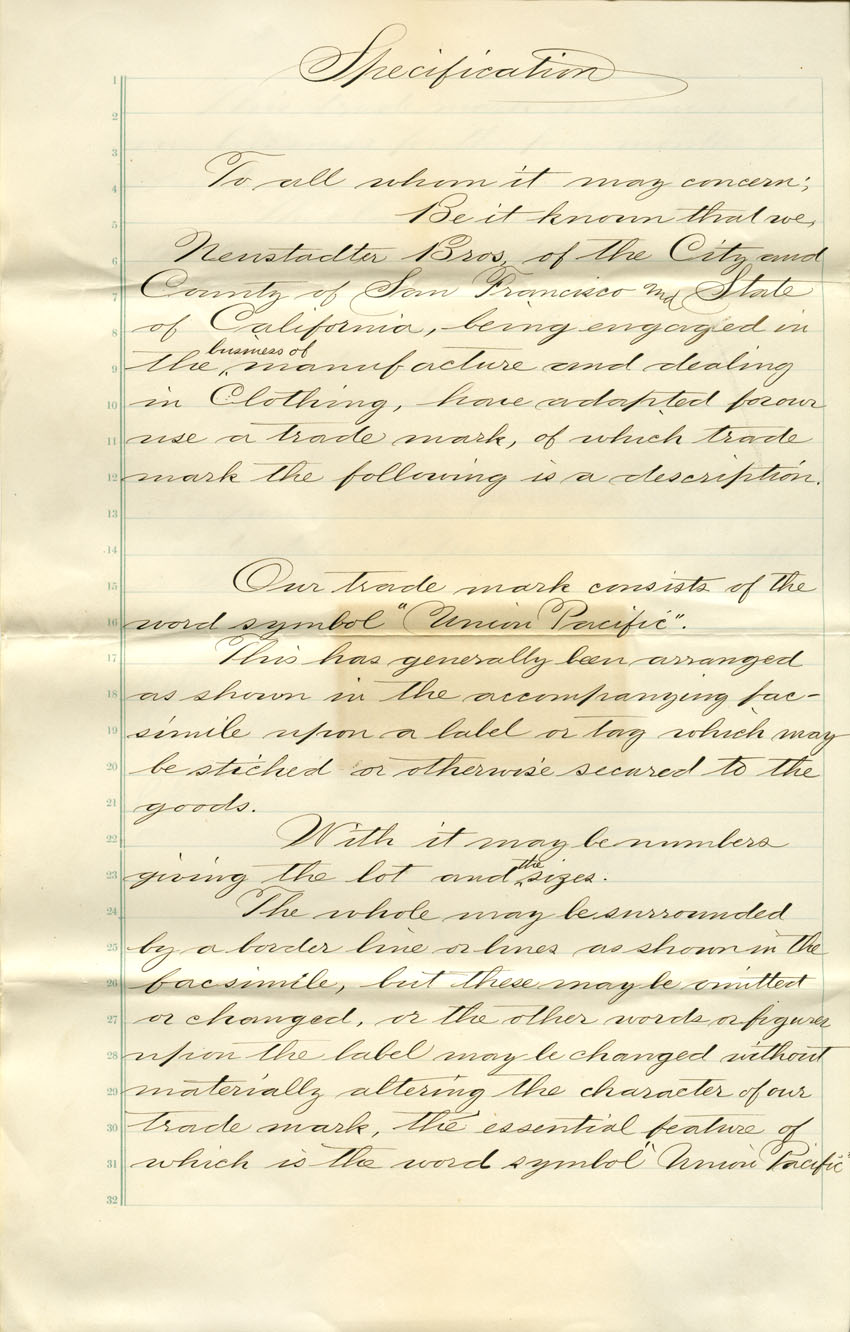 Specification
1
2
3
To all whom it may concern;
4
Be it known that we,
5
Neustadter Bros, of the City and
6
County of San Francisco and State
7
of California, being engaged in
8
business of
the manufacture and dealing
9
in Clothing, have adapted for our
10
use a trade mark, of which trade
11
mark the following is a description.
12
13
14
Our trade mark consists of the
15
word symbol "Union Pacific".
16
This has generally been arranged
17
as shown in the accompanying fac-
18
simile upon a label or tag which may
19
be stiched or otherwise secured to the
20
goods.
21
With it may be numbers
22
the
giving the lot and sizes.
23
The whole may be surrounded
24
by a border line or lines as shown in the
25
facsimile, but these may be omitted
26
or changed, or the other words or figures
27
upon the label may be changed without
28
materially altering the character of our
29
trade mark, the essential feature of
30
which is the word symbol "Union Pacific"
31
32